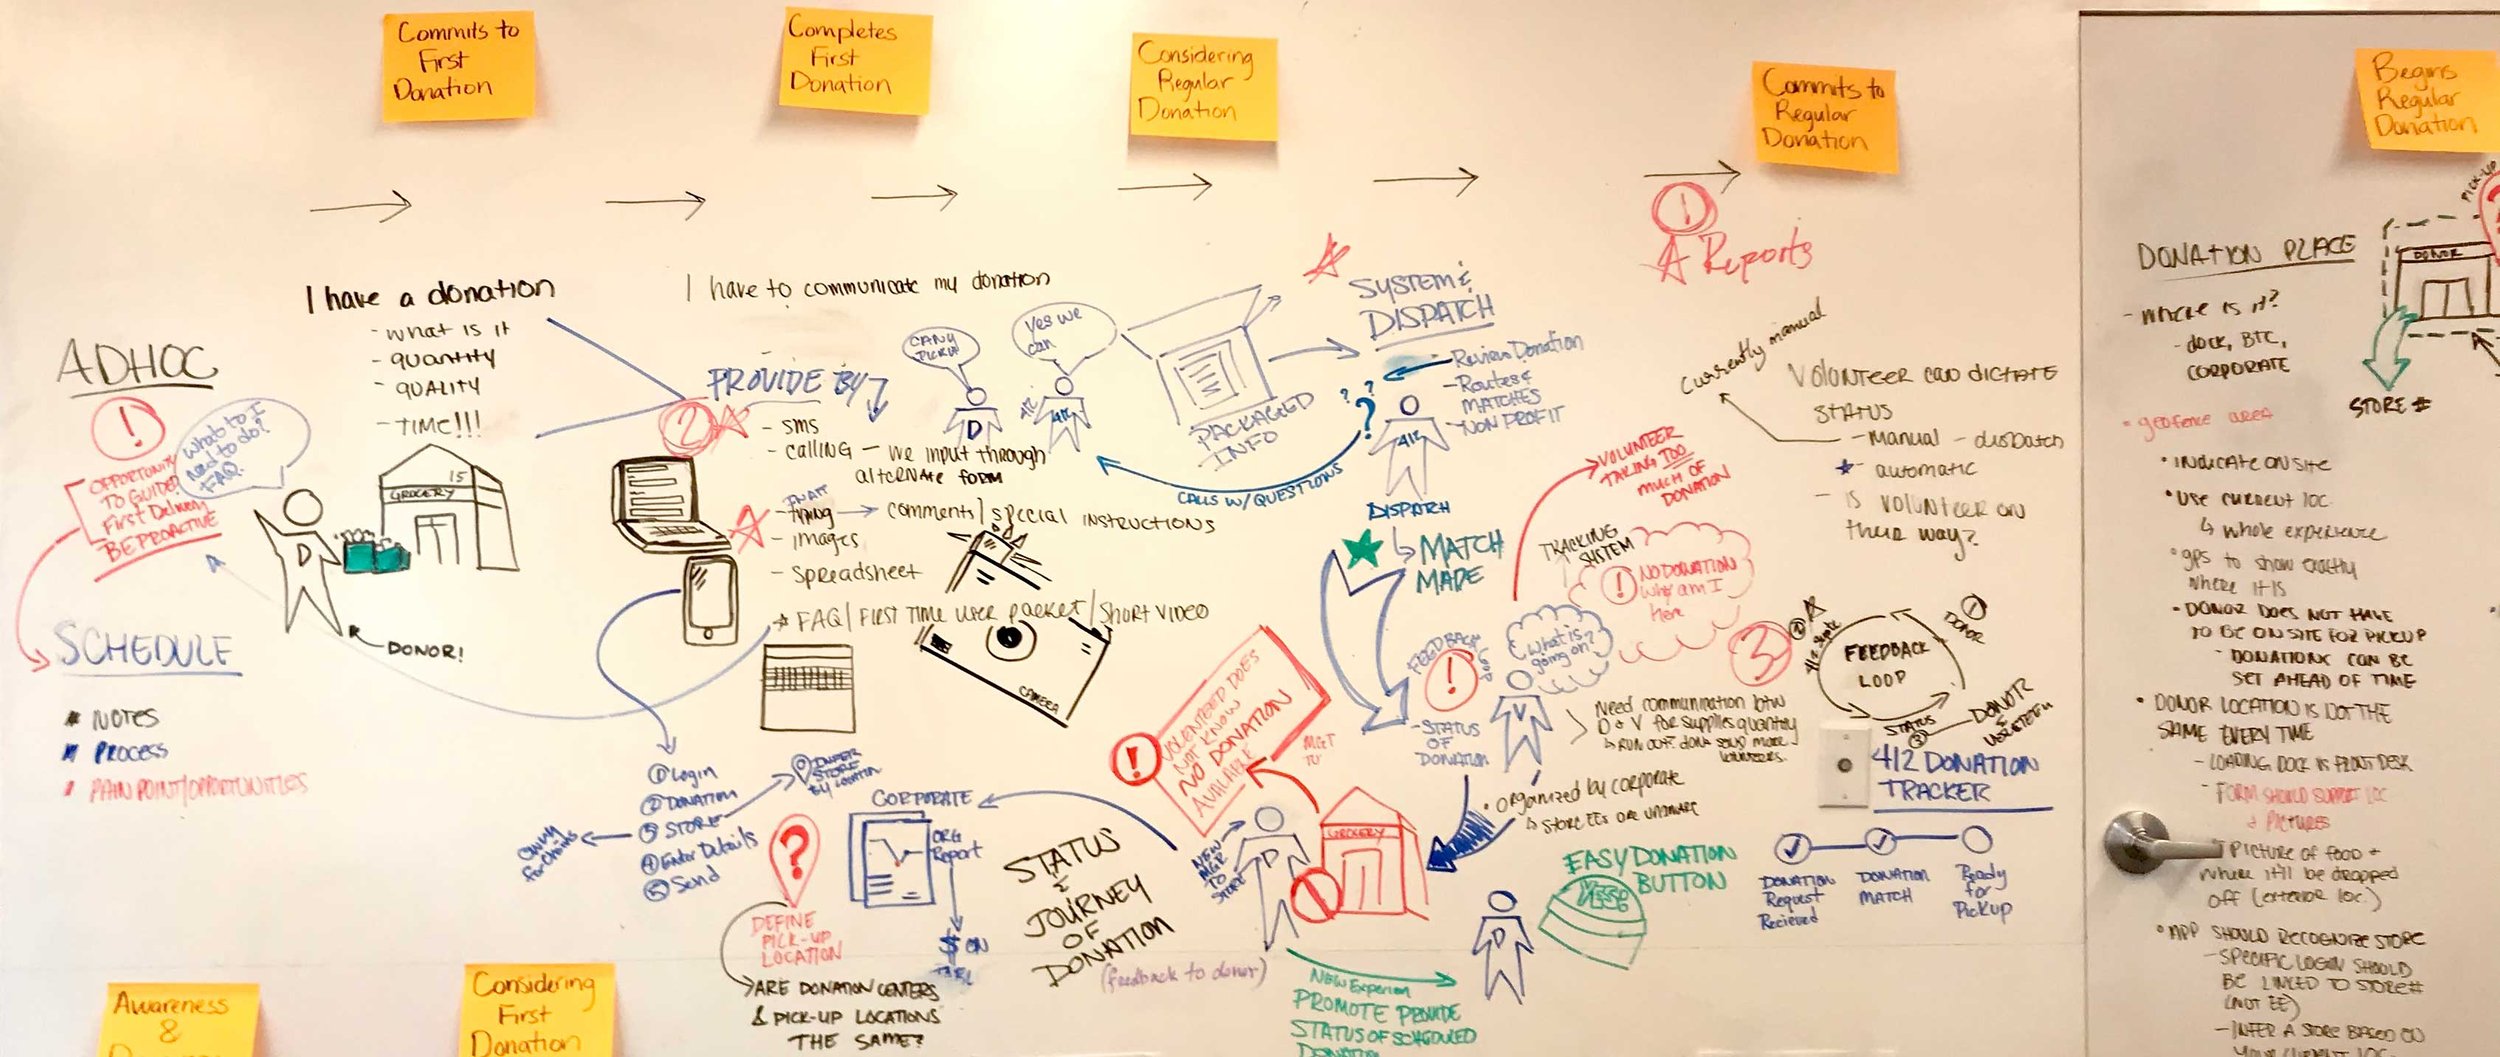 Commits to
First
Donation
Completes
First
Donation
Considering
Regular
Donation
Commits to
Regular
Donation
Begins
Regular
Donation
I have a donation
- what is it
- quantity
- QUALITY
- TIME!!!
ADHOC
!
OPPORTUNITY
TO GUIDED
First Delivery
BE PROACTIVE
What do I
need to do?
FAQ.
15
GROCERY
D
DONOR!
SCHEDULE
NOTES
PROCESS
PAIN POINT/OPPORTUNITIES
I have to communicate my donation
PROVIDE BY
2
- SMS
- CALLING - WE INPUT THROUGH
ALTERNATE FORM
- typing → comments/special INSTRUCTIONS
- images
- Spreadsheet
* FAQ/FIRST TIME user packet/SHORT VIDEO
CAN U
PICKUP
Yes we
can
D
412
412
PACKAGED
INFO
CAMERA
SYSTEM &
DISPATCH
- Review Donation
- Routes &
MATCHES
NON PROFIT
? ? ?
412
CALLS W/ QUESTIONS
DISPATCH
MATCH
MADE
① Login
② DONATION
③ STORE
④ Enter Details
⑤ Send
STORE
BY LOCATION
ONLY
for chains
?
DEFINE
PICK-UP
LOCATION
ARE DONATION CENTERS
& PICK-UP LOCATIONS
THE SAME?
CORPORATE
ORG
Report
$ ON
STATUS
&
JOURNEY
OF
DONATION
(feedback to donor)
!
VOLUNTEER DOES
NOT KNOW
NO DONATION
AVAILABLE
NEW
MGR
TO
STORE
D
GROCERY
FEEDBACK
LOOP
!
- STATUS
OF
DONATION
What is
going on?
V
TRACKING
SYSTEM
!
NO DONATION
Why am I
Here
VOLUNTEER
TAKING TOO
MUCH OF
DONATION
Need communication btw
D & V for supplies quantity
↳ RUN OUT. don't send more
volunteers.
• Organized by corporate
↳ STORE EEs are unaware
NEW Experien
PROMOTE PROVIDE
STATUS OF SCHEDULED
D
EASY DONATION
BUTTON
YESS
!
Reports
Currently manual
VOLUNTEER CAN DICTATE
STATUS
- Manual - dispatch
- automatic
- IS VOLUNTEER ON
their way?
3
FEEDBACK
LOOP
DONOR
STATUS
DONOR
&
VOLUNTEER
412 DONATION
TRACKER
DONATION
Request
Recieved
DONATION
MATCH
Ready
for
Pickup
DONATION PLACE
- Where is it?
- dock, BTC,
CORPORATE
PICK-UP
DONOR
STORE #
• geofence area
• INDICATE ON SITE
• Use current loc
↳ whole experience
• gps to show exactly
where it is
• DONOR DOES NOT HAVE
TO BE ON SITE FOR PICKUP
- DONATIONS CAN BE
SET AHEAD OF TIME
• DONOR LOCATION IS NOT THE
SAME EVERY TIME
- LOADING DOCK VS FRONT DESK
- FORM SHOULD SUPPORT LOC
& PICTURES
PICTURE OF FOOD +
where it'll be dropped
off (exterior loc.)
• APP SHOULD RECOGNIZE STORE
- SPECIFIC LOGIN SHOULD
BE LINKED TO STORE #
(NOT EE)
- INFER A STORE BASED ON
YOUR CURRENT LOC
Awareness
&
Considering
First
Donation